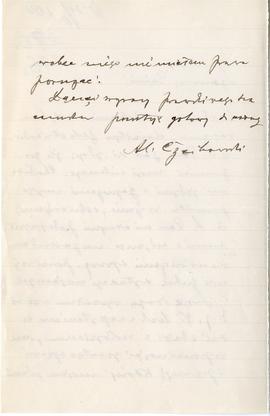 wobec niego nie miałem prawa
poruszać.
Łączę wyrazy prawdziwego sza
cunku pozostaję gotowy do usług
Al. Czajkowski